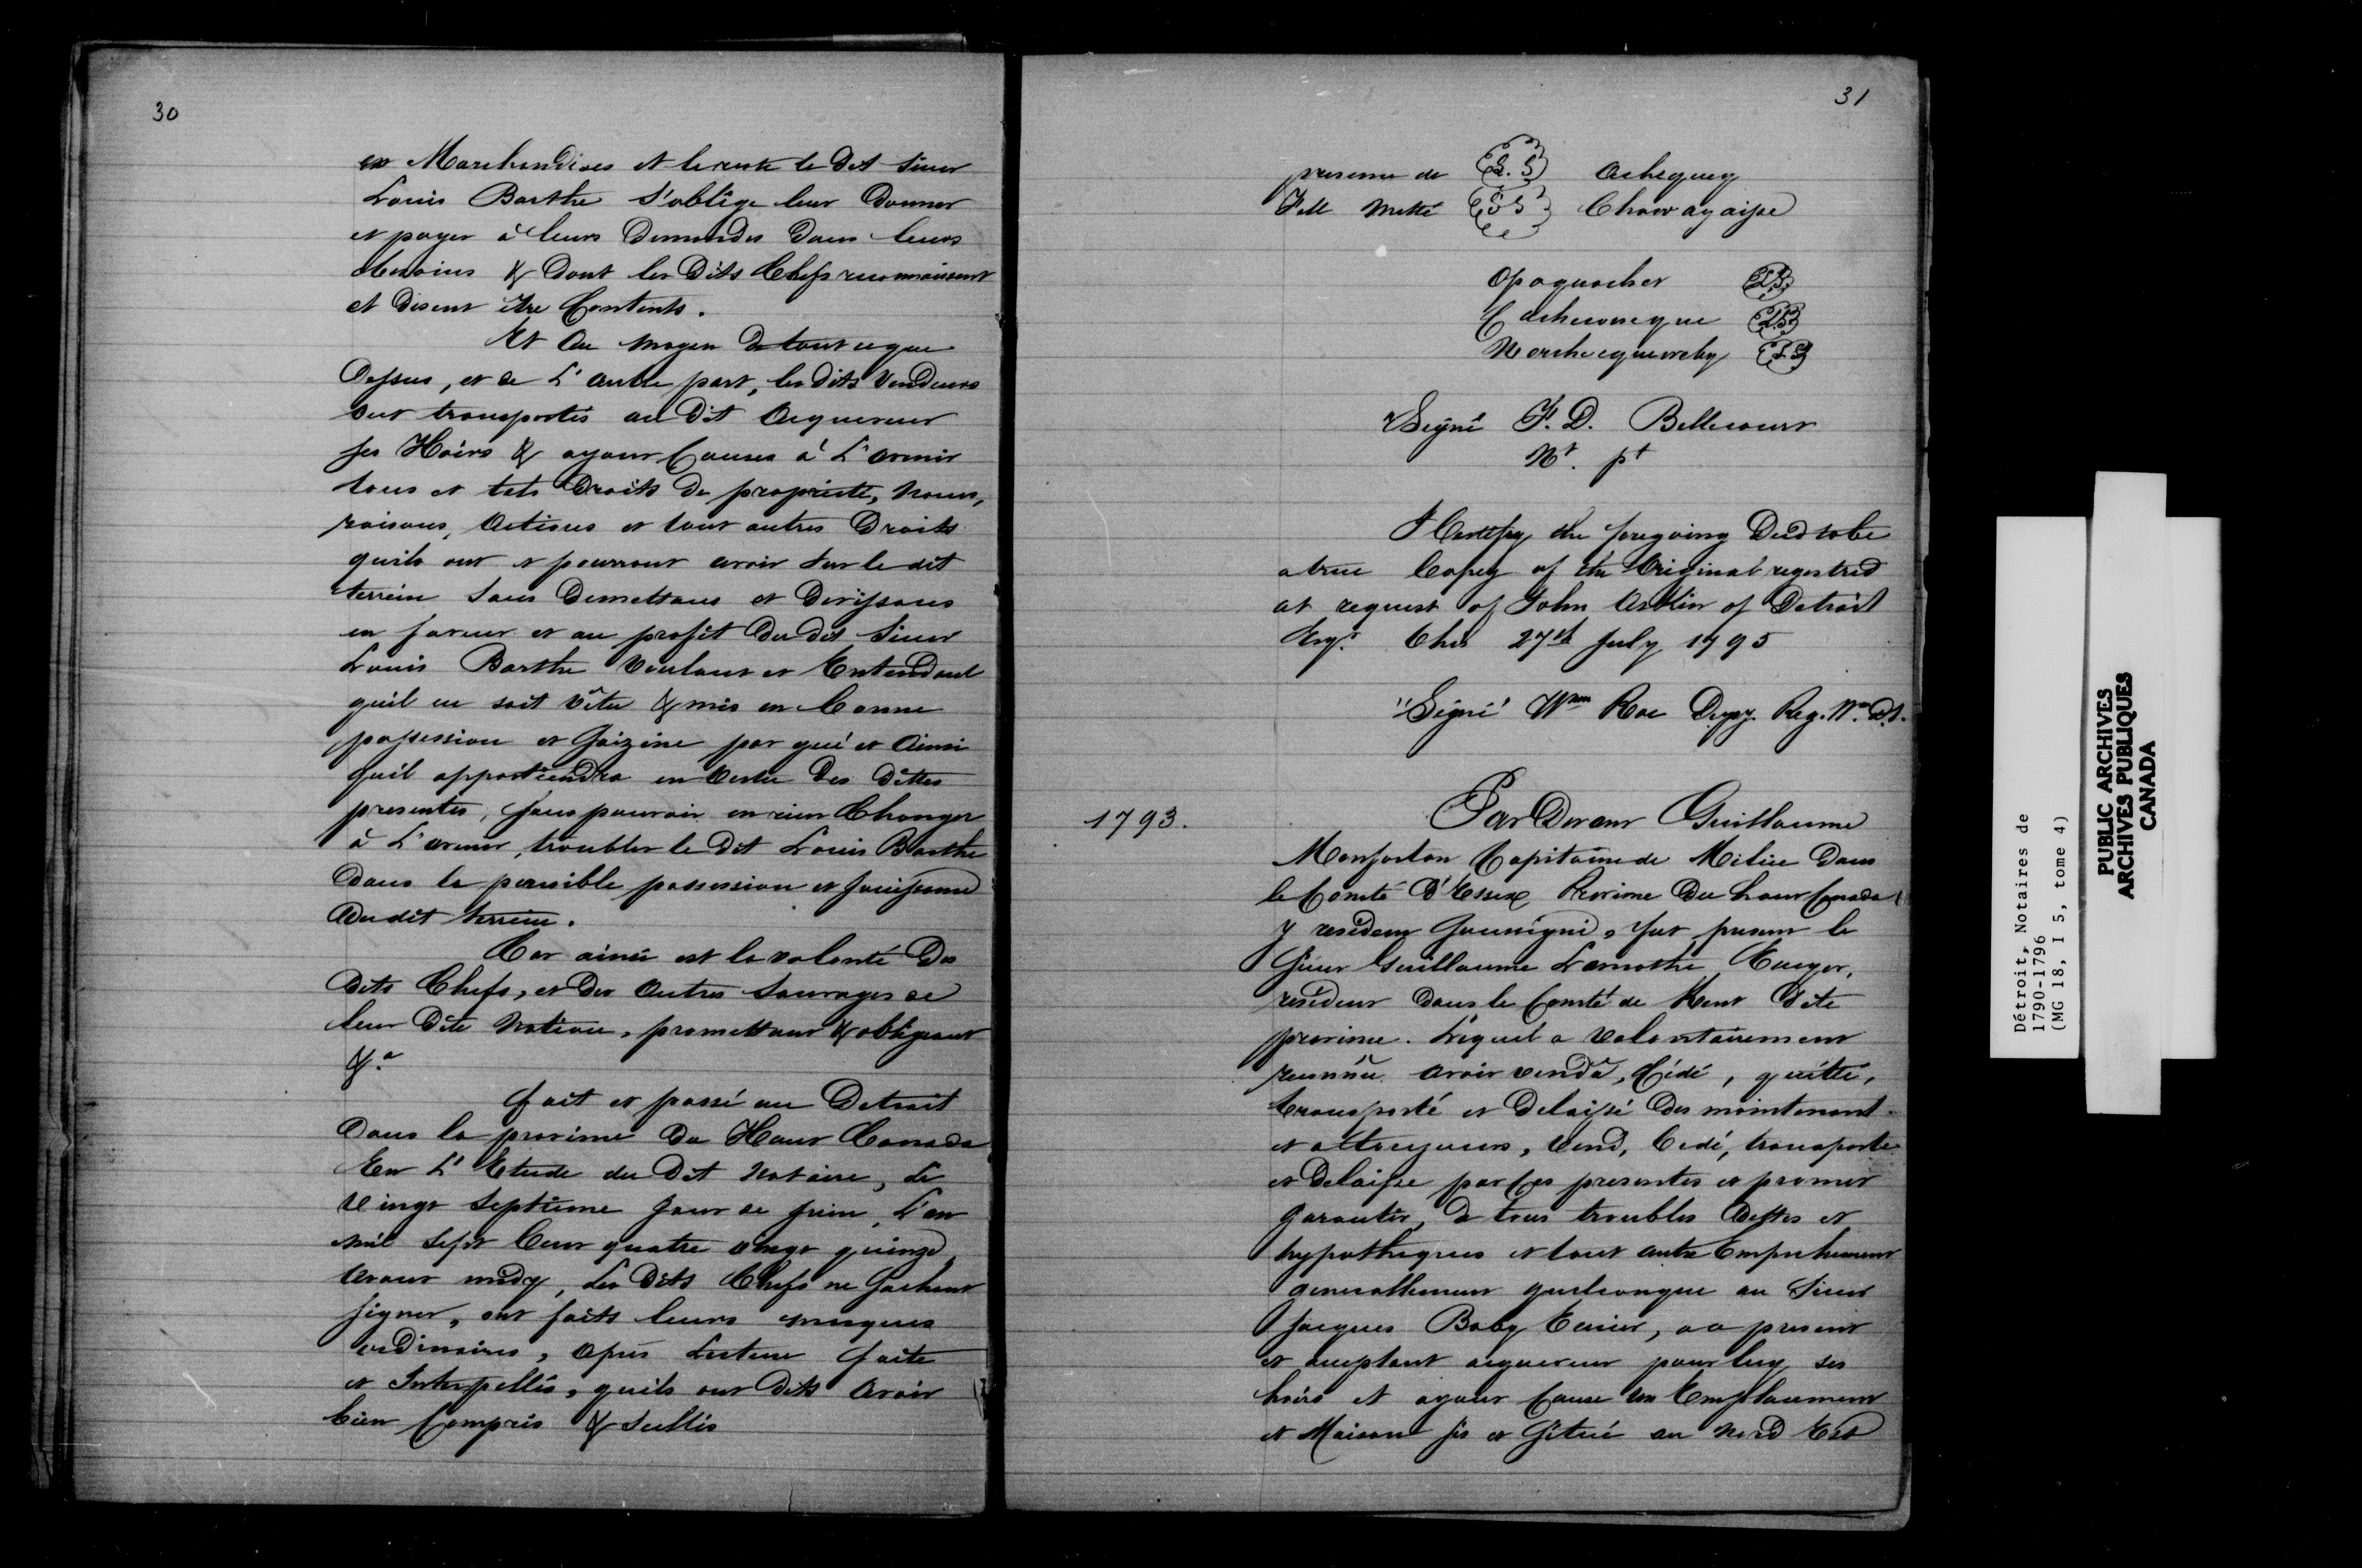 30
en Marchandises et le reste le dit Sieur
Louis Barthe s'oblige leur donner
et payer à leurs demandes dans leurs
besoins & dont les dits Chefs reconnaissent
et disent être Contents.
Et au moyen de tout ce que
dessus, et de l'autre part, les dits Vendeurs
ont transportés au dit acquereur
ses Hoirs & ayant Causes à l'avenir
tous et tels droits de propriété, noms,
raisons, actions et tout autres droits
quils ont et pourront avoir sur le dit
terrein Sans demettans et devissans
en faveur et au profit du dit Sieur
Louis Barthe Voulant et Entendant
quil en soit vêtu & mis en bonne
possession et saizine par qui et ainsi
quil appartiendra en vertu des dittes
presentes, sans pouvoir en rien Changer
à l'avenir, troubler le dit Louis Barthe
dans la paisible possession et jouissance
du dit terrein.
Car ainsi est la volonté des
dits Chefs, et des autres Sauvages de
leur dite Nation, promettant & obligeant
&a.
fait et passé au Detroit
dans la province du Haut Canada
En l'Etude du dit Notaire, le
Vingt Septième jour de juin, l'an
mil Sept Cent quatre vingt quinze
avant midy, Les dits Chefs ne sachant
signer, ont faits leurs marques
ordinaires, après Lecture faite
et Interpellés, quils ont dits avoir
bien Compris & Scellés
31
presence de L.S Achequey
Fell Metté L.S Chawagaisse
Opaquocher L.S.
Cashewneque L.S
Noeshecquewehy L.S
"Signé F. D. Bellecour
Nt. pt
I Certify the foregoing Deed to be
a true Copey of the Original registred
at request of John Askin of Detroit
Esqr. this 27th July 1795
"Signé" Wm Roe Depy. Reg. Wn D.t.
1793.
Par Devant Guillaume
Monforton Capitaine de Milice dans
le Comté d'Essex Province du haut Canada
y resident soussigné, fut present le
Sieur Guillaume Lamothe Ecuyer,
resident dans le Comté de Kent dite
province. Lequel a Volontairement
reconnû avoir vendû, Cédé, quitté,
transporté et delaissé des maintenant
et a toujours, Vend, Cedé, transporte
et delaisse par ces presentes et promet
garantir, de tous troubles dettes et
hypotheques et tout autre Empechement
generallement quelconque au Sieur
Jacques Baby Ecuier, a ce present
et acceptant acquereur pour luy ses
hoirs et ayant Cause un Emplacement
et Maison sis et situé au Nord Est
Détroit, Notaires de
1790-1796
(MG 18, I 5, tome 4)
PUBLIC ARCHIVES
ARCHIVES PUBLIQUES
CANADA